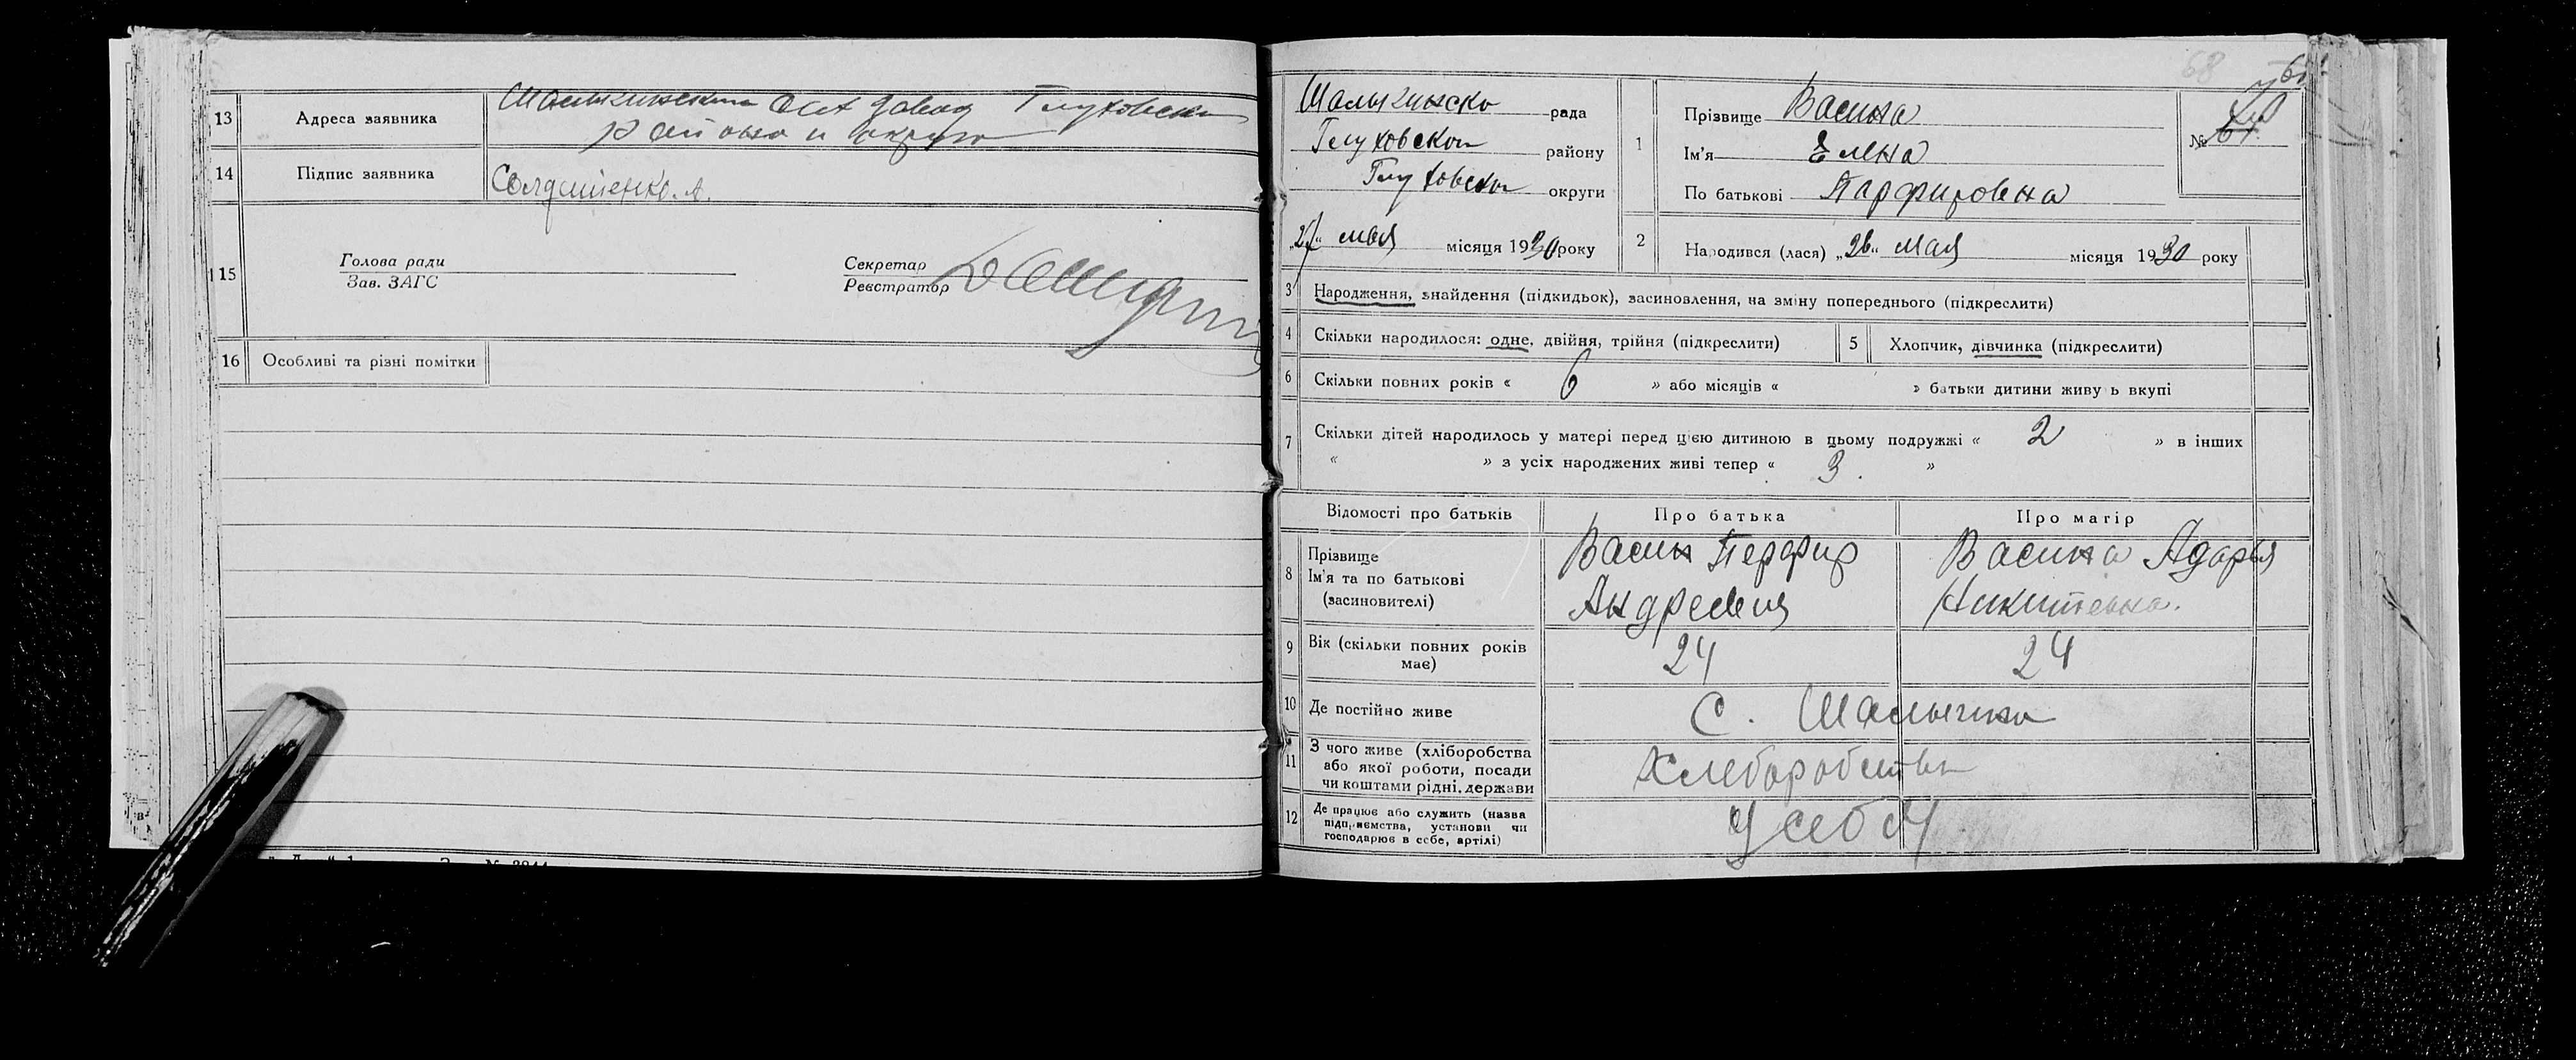 13 Адреса заявника Шалыгинский сах завод Глуховски
района и округа
14 Підпис заявника Солдатенко. А.
15 Голова ради
Зав. ЗАГС
Секретар
Реєстратор
16 Особливі та різні помітки
68
Шалыгинско рада
Глуховской району
Глуховской округи
„27“ мая місяця 1930 року
1 Прізвище Васина
Ім'я Елена
По батькові Парфировна
№
2 Народився (лася) „26“ мая місяця 1930 року
3 Народження, знайдення (підкидьок), засиновлення, на зміну попереднього (підкреслити)
4 Скільки народилося: одне, двійня, трійня (підкреслити) 5 Хлопчик, дівчинка (підкреслити)
6 Скільки повних років « 6 » або місяців « » батьки дитини живу ь вкупі
7 Скільки дітей народилось у матері перед цією дитиною в цьому подружжі « 2 » в інших
« » з усіх народжених живі тепер « 3. »
Відомості про батьків Про батька Про матір
8 Прізвище
Ім'я та по батькові
(засновителі)
Васин Перфир
Андреевич
Васина Адарья
Никитевна.
9 Вік (скільки повних років
має) 24 24
10 Де постійно живе С. Шалыгина
11 З чого живе (хліборобства
або якої роботи, посади
чи коштами рідні, держави
Хлеборобства
12 Де працює або служить (назва
підприємства, установи чи
господарює в себе, артілі)
у себя